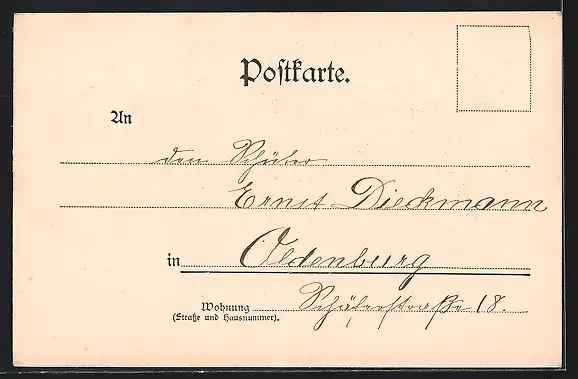 Postkarte.
An
dem Schüler
Ernst Dieckmann
in Oldenburg
Wohnung Schäferstraße 18.
(Straße und Hausnummer).